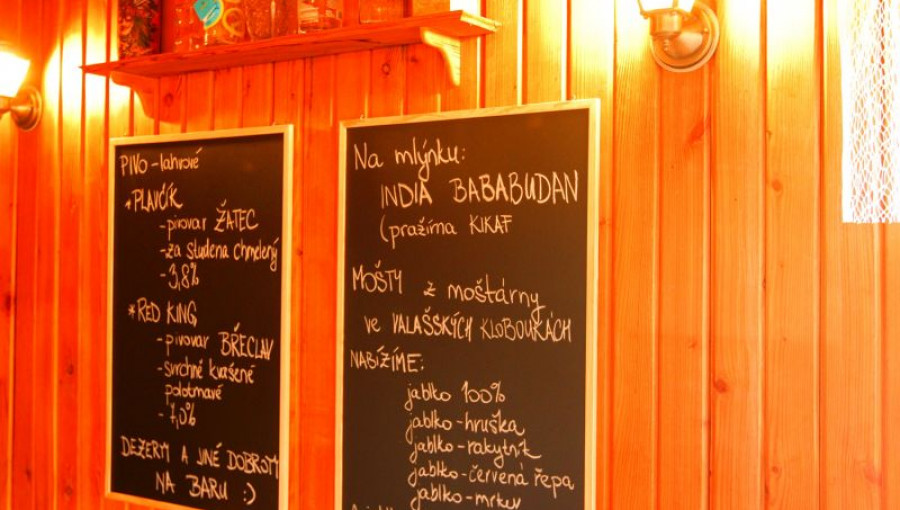 PIVO - lahvové
*PLAVČÍK
- pivovar ŽATEC
- za studena chmelený
- 3,8%
*RED KING
- pivovar BŘECLAV
- svrchně kvašené
polotmavé
- 7,0%
DEZERTY A JINÉ DOBROTY
NA BARU :)
Na mlýnku:
INDIA BABABUDAN
(pražírna KIKAF
MOŠTY z moštárny
ve VALAŠSKÝCH KLOBOUKÁCH
NABÍZÍME:
jablko 100%
jablko-hruška
jablko-rakytník
jablko-červená řepa
jablko-mrkev